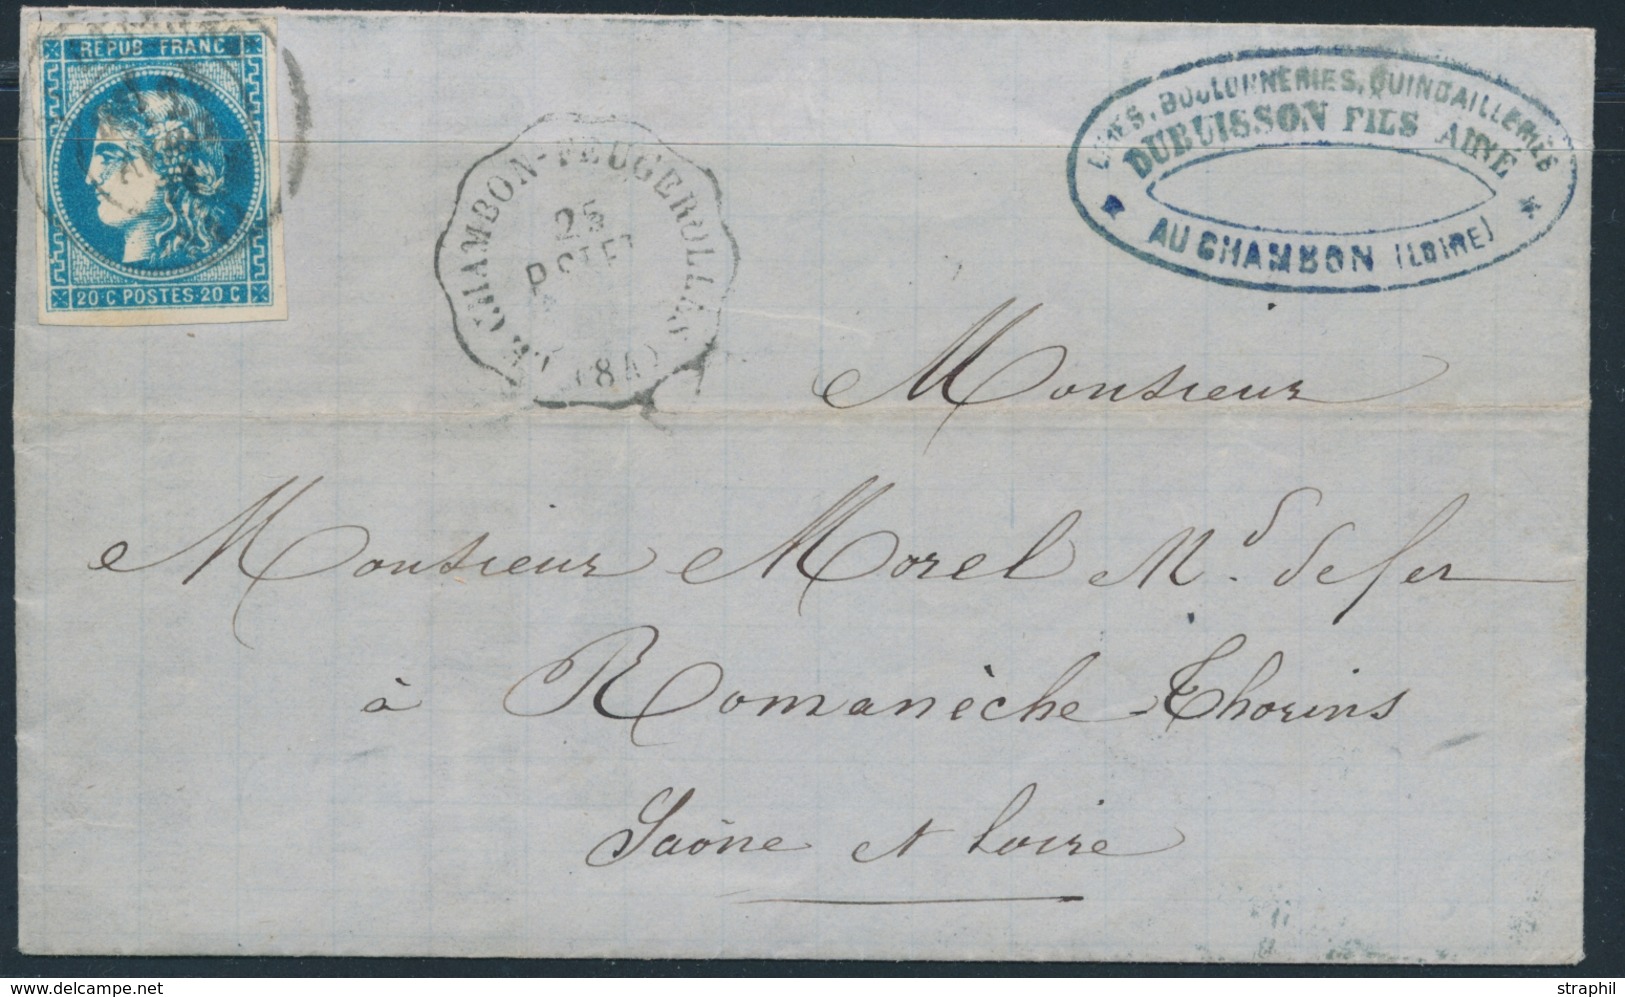 REPUB FRANC
20 C POSTES 20 C
LE CHAMBON-FEUGEROLLES
25
(84)
LIMES, BOULONNERIES, QUINCAILLERIES
DUBUISSON FILS AINE
AU CHAMBON (LOIRE)
Monsieur
Monsieur Morel Md. de fer
à Romanèche Thorins
Saône et Loire
straphil